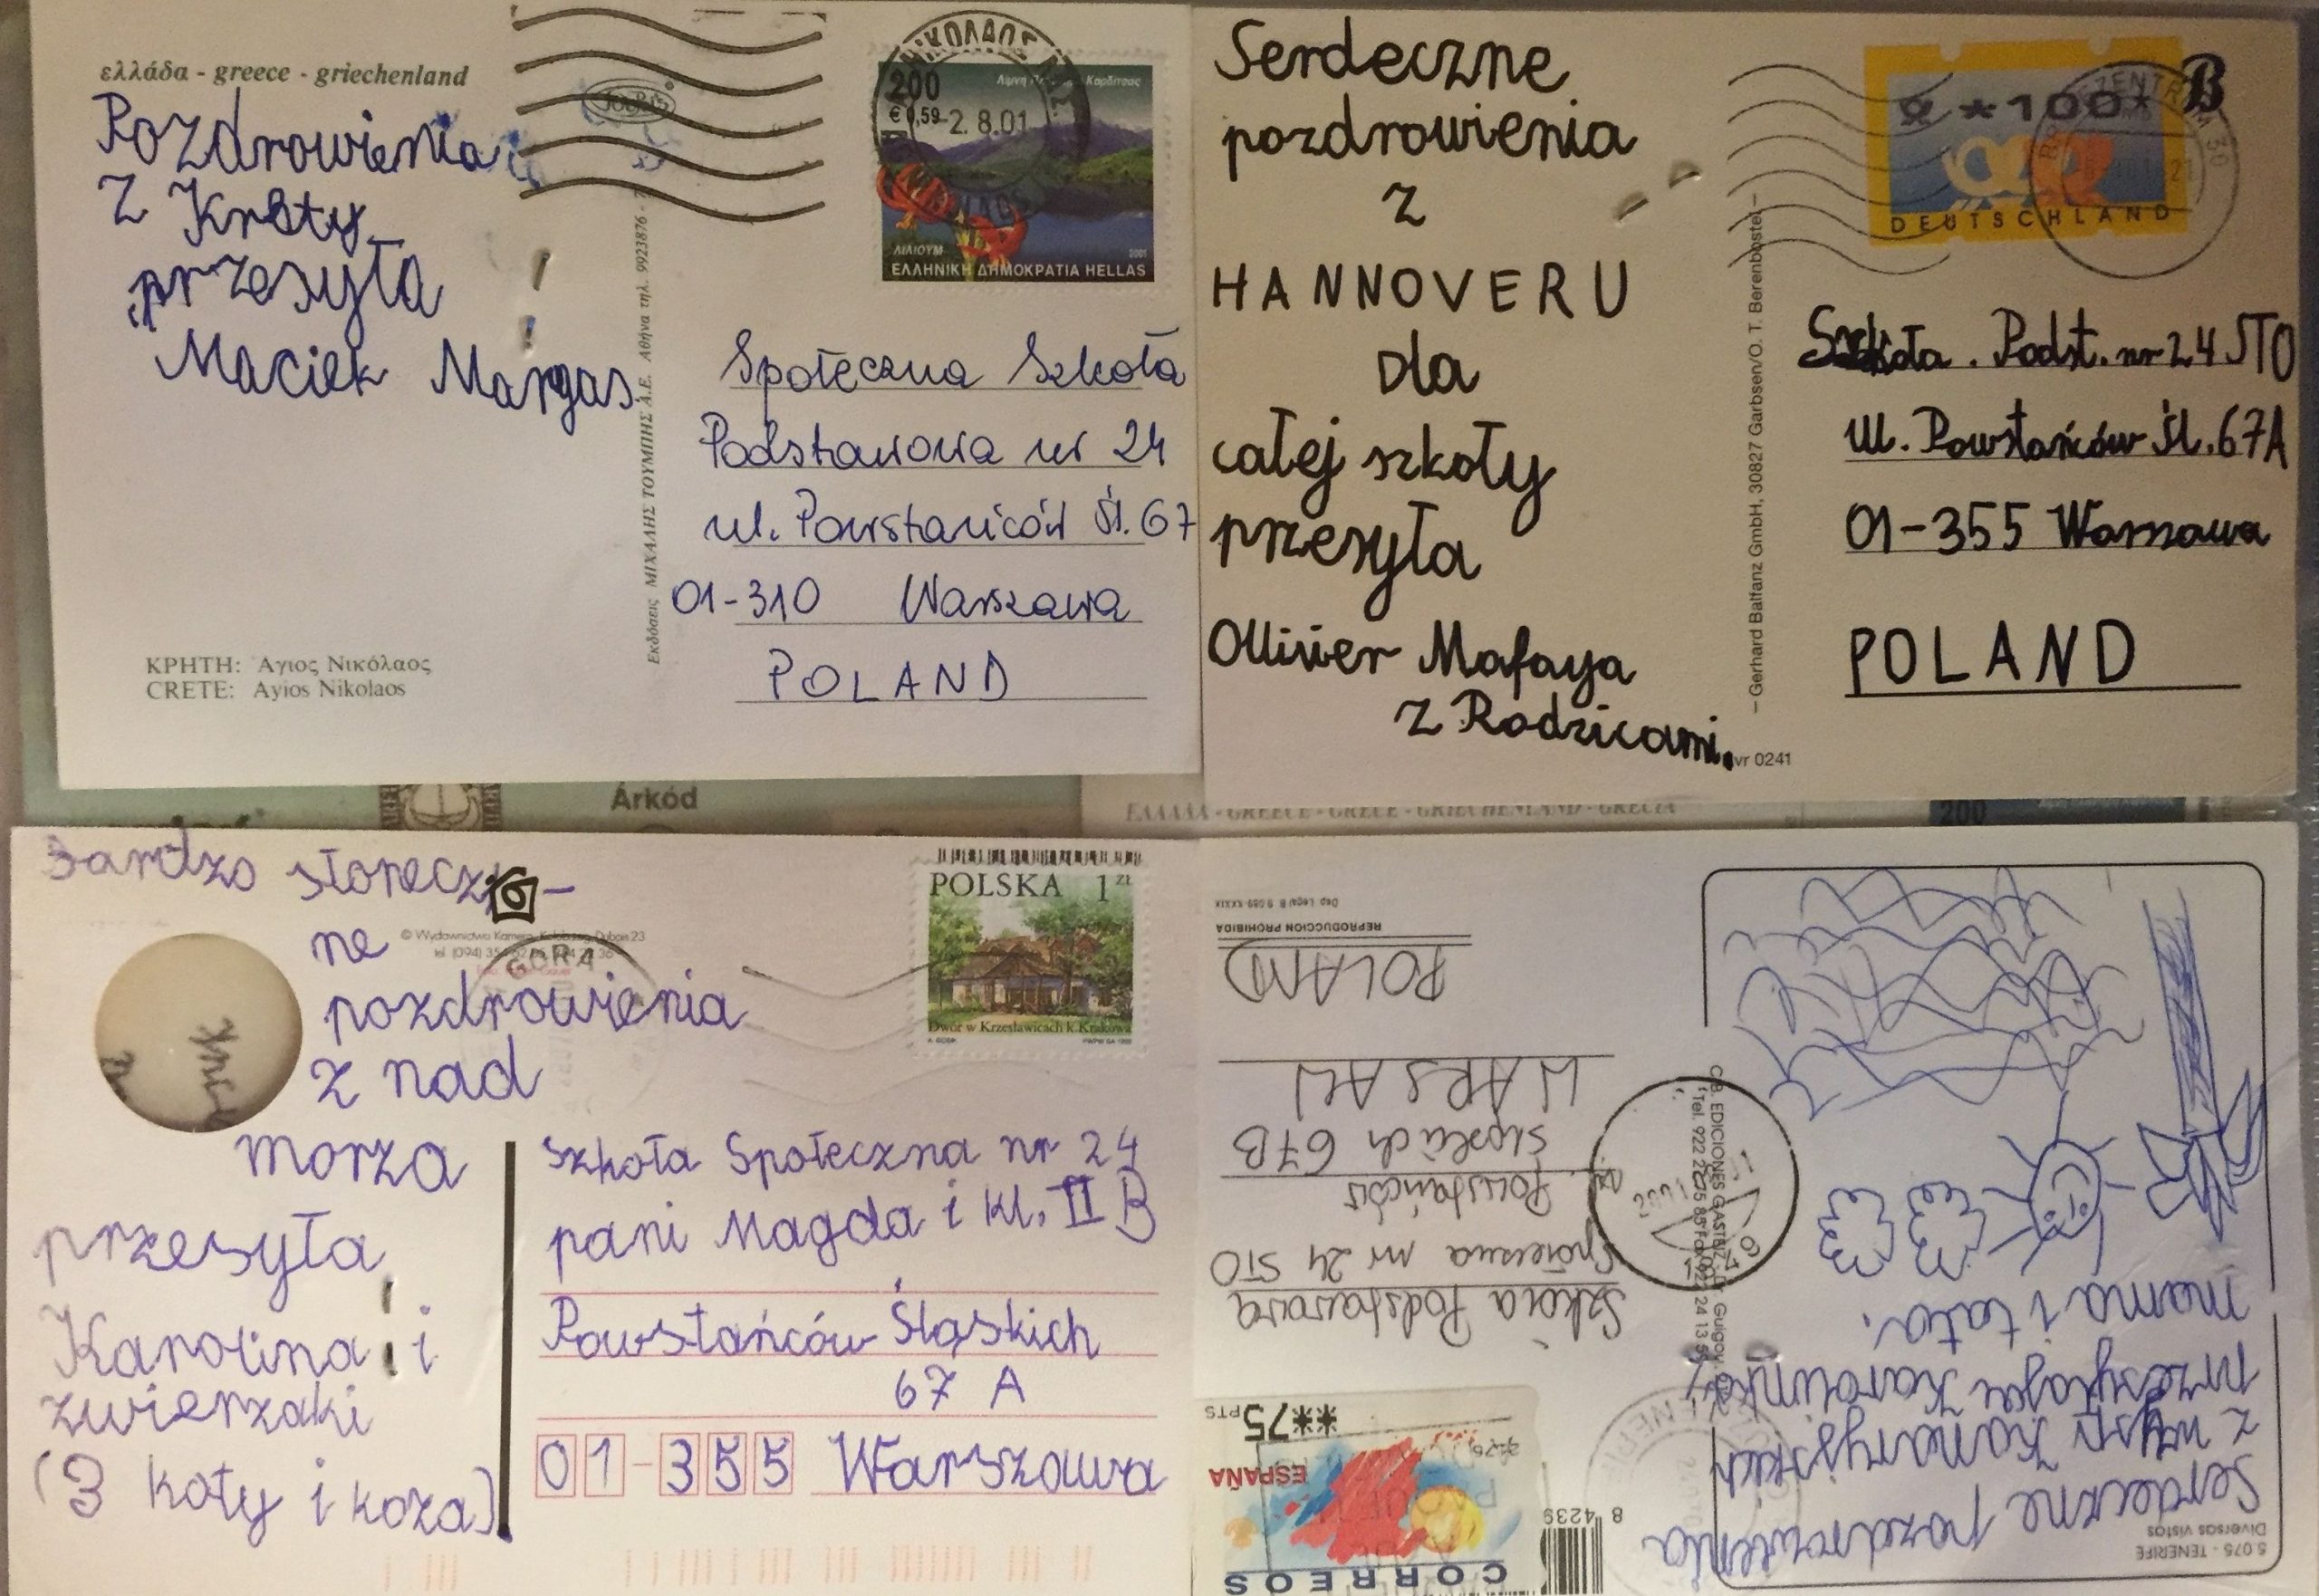 ελλάδα - greece - griechenland
Pozdrowienia
z Krety
przesyła
Maciek Margas
ΚΡΗΤΗ: Άγιος Νικόλαος
CRETE: Ayios Nikolaos
Εκδόσεις ΜΙΧΑΛΗΣ ΤΟΥΜΠΗΣ Α.Ε. Αθήνα τηλ. 9923876
200
€ 0,59
-2. 8.01
ΛΙΛΙΟΥΜ
2001
ΕΛΛΗΝΙΚΗ ΔΗΜΟΚΡΑΤΙΑ HELLAS
Społeczna Szkoła
Podstawowa nr 24
ul. Powstańców Śl. 67
01-310 Warszawa
POLAND
Serdeczne
pozdrowienia
z
HANNOVERU
dla
całej szkoły
przesyła
Ollivier Mafaya
z Rodzicami.
vr 0241
– Gerhard Balfanz GmbH, 30827 Garbsen/O. T. Berenbostel –
*100*
DEUTSCHLAND
B
Szkoła. Podst. nr 24 STO
ul. Powstańców Śl. 67A
01-355 Warszawa
POLAND
Árkód
ΕΛΛΑΔΑ - GREECE - GRECE - GRIECHENLAND - GRECIA
200
Bardzo słonecz-
ne
pozdrowienia
z nad
morza
przesyła
Karolina i
zwierzaki
(3 koty i koza)
© Wydawnictwo Kamera, Kołobrzeg, Dubois 23
GÓRA
POLSKA 1 ZŁ
Dwór w Krzesławicach k. Krakowa
Szkoła Społeczna nr 24
pani Magda i kl. II B
Powstańców Śląskich
67 A
01-355 Warszawa
5.075 - TENERIFE
Diversas vistas
Serdeczne pozdrowienia
z wysp Kanaryjskich
przesyłają Karolinka,
mama i tata.
CORREOS
ESPAÑA
**75 PTS
8 4239
Szkoła Podstawowa
Społeczna nr 24 STO
ul. Powstańców
Śląskich 67B
WARSAW
POLAND
REPRODUCCION PROHIBIDA